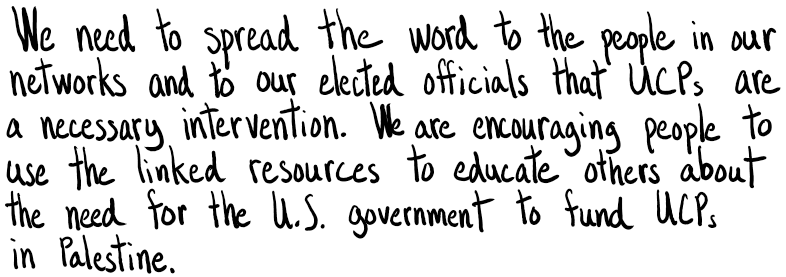 We need to spread the word to the people in our
networks and to our elected officials that UCPs are
a necessary intervention. We are encouraging people to
use the linked resources to educate others about
the need for the U.S. government to fund UCPs
in Palestine.